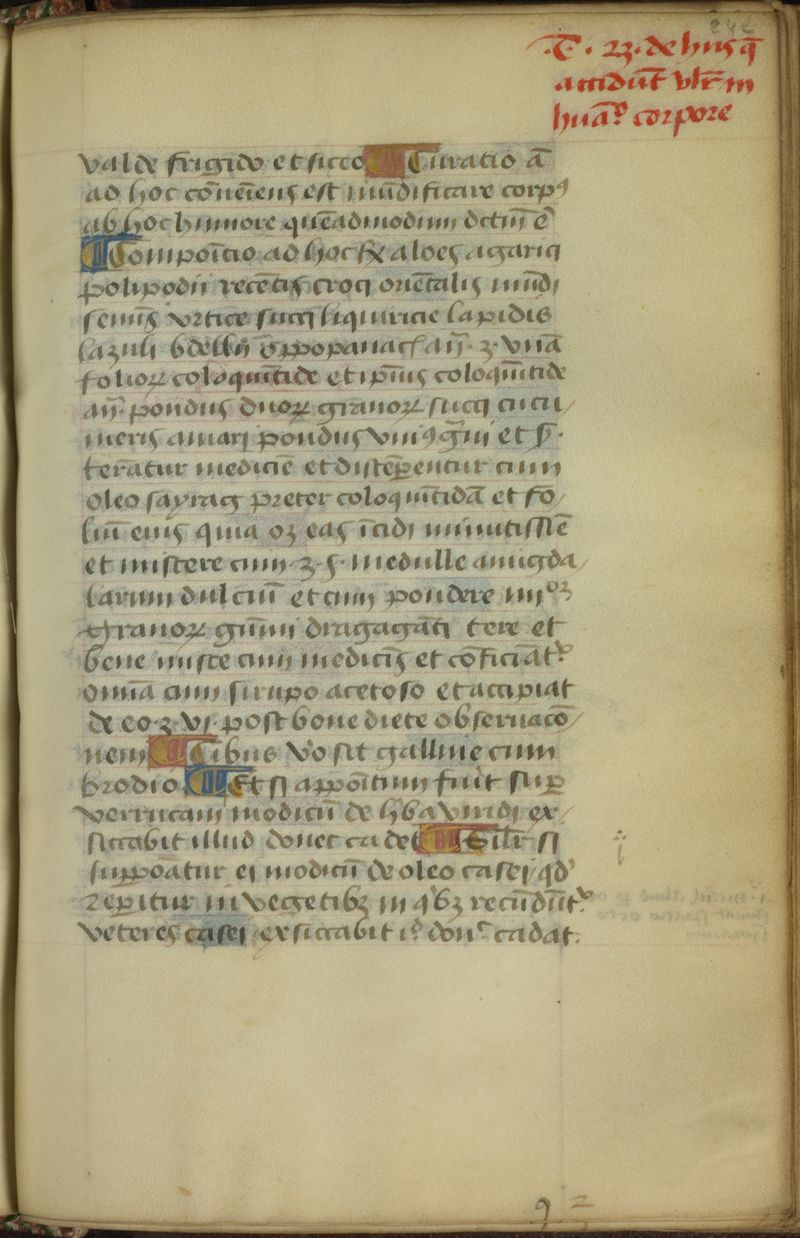 242
.T. 23. de hiis q̄
accidūt vlr̄ in
huāo corpore
valde frigido et sicco Curatio ā
ad hoc cōueīens est mūdificare corpꝰ
ab hoc humore quēadmodum dctm̄ ē
Compoītio ad hoc ℞ aloes agarici
polipodii recētis croci oriētalis mūdi
semīs vrtice succi liquiricie lapidis
lazuli bdellii oppopanac an̄ ʒ vnā
folioꝝ coloquītide et ipīus coloquītide
an̄ pondus duoꝝ granoꝝ succi cucu
meris amari pondus
teratur medicīe et distēperentur cum
oleo sayracis preter coloquītidā et fo
liū eius quia oꝫ eas īcidi minutissīe
et miscere cum ʒ medulle amigda
larum dulciū et cum pondere iiiior
granoꝝ gūmi dragagāti tere et
bene misce cum medicīs et cōficiātr
omīa cum sirupo acetoso et accipiat
de eo ʒ vi post bone diete obseruacō
nem Cibus vo sit galline cum
brodio Et si appoītum fuit sup
verrucam modicū de hba viridi ex
siccabit illud donec cadet Silr si
suppoātur ei modicū de oleo casei qd
reperitur in vegetibꝫ in qibꝫ recūdūtr
veteres casei exsiccabit id donc cadat.